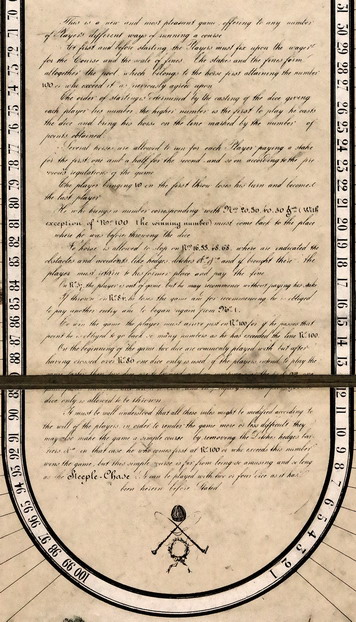 This is a new and most pleasant game offering to any number
of Players different ways of running a course
At first and before starting the Players must fix upon the wages
for the Course and the scale of fines. The stakes and the fines form
altogether the pool which belongs to the horse first attaining the number
100 or who exceed it as
The order of starting is determined by the casting of the dice giving
each player his number the higher number is the first to play he casts
the dice and bring his horse on the line marked by the number of
points obtained
Several horses are allowed to run for each Player paying a stake
for the first, one and a half for the second and so on according to the pre
regulations of the game
The player bringing 10 in the first throw loses his turn and becomes
the last player
He who brings a number corresponding with Nos 20, 30, 40, 50 &c (With
exception of No 100 the winning number) must come back to the place
where he was before throwing the dice
No horse is allowed to stop on where are indicated the
obstacles and accidents like hedges, ditches &c &c and if brought there the
player must return to his former place and pay the fine
the player is out of game but he may recommence without paying his stake
If thrown on he is out the game and for recommencing he is obliged
to pay another entry and to began again from No 1.
To win the game the player must arrive just on No 100 for if he passes that
point he is obliged to go back as many numbers as he has exceeded the line No 100.
On the beginning of the game two dice are commonly played with but after
having served over No 80 one dice only is used, if the players intend to play the
dice only is allowed to be thrown
It must be well understood that all these rules might be modified according to
the will of the players in order to render the game more or less difficult they
may also make the game a simple course by removing the ditches, hedges, bar
riers &c in that case he who comes first at No 100 or who exceeds this number
wins the game, but this simple course is far from being so amusing and so long
as the Steeple-Chase to be played with two or four dice as it has
been herein before stated
70
71
72
73
74
75
76
77
78
79
80
81
82
83
84
85
86
87
88
89
90
91
92
93
94
95
96
97
98
99
100
1
2
3
4
5
6
7
8
9
10
11
12
14
15
16
17
18
19
20
21
22
23
24
25
26
27
28
29
30
31